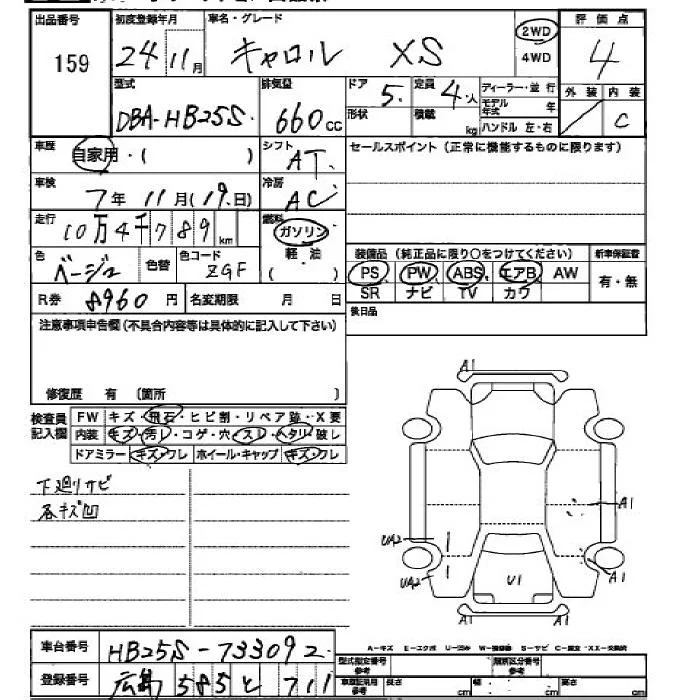 出品番号 初度登録年月 車名・グレード 2WD 評価点
159 24 11月 キャロル XS 4WD 4
型式 排気量 ドア 5. 定員 4人 ディーラー・並行 外装 内装
DBA-HB25S. 660cc 形状 積載 kg モデル年式 年 C
ハンドル 左・右
車歴 自家用・( ) シフト AT. セールスポイント(正常に機能するものに限ります)
車検 7年 11月(19日) 冷房 AC
走行 10万4千789km 燃料 ガソリン
色 ベージュ 色替 色コード ZGF 軽油 ( )
装備品(純正品に限り○をつけてください) 新車保証書
PS PW ABS エアB AW 有・無
R券 8960円 名変期限 月 日 SR ナビ TV カワ
注意事項申告欄(不具合内容等は具体的に記入して下さい) 後日品
修復歴 有 〔箇所 〕
検査員記入欄 FW キズ・飛石・ヒビ割・リペア跡・X要
内装 キズ・汚レ・コゲ・穴・スレ・ヘタリ・破レ
ドアミラー キズ・ワレ ホイール・キャップ キズ・ワレ
A1
下廻リサビ
各キズ凹
A1
UA2
UA2 U1 A1
A1 A1
車台番号 HB25S-733092
A-キズ E-エクボ U-凹み W-補修跡 S-サビ C-腐食 XX-交換済
型式指定番号 参考 類別区分番号 参考
登録番号 広島 585 と 711
車庫証明用 参考 長さ cm 幅 cm 高さ cm